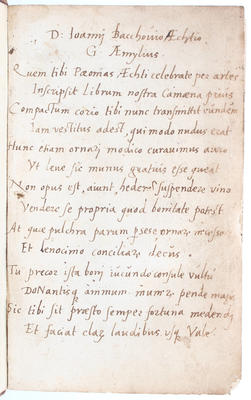 D: Ioannj Bacchouio Æchtio
G. Æmylius.
Quem tibi Pæonias Æchti celebrate per artes
Inscripsit librum nostra Camœna prius
Compactum corio tibi nunc transmittit eundem
Iam vestitus adest, qui modo nudus erat
Hunc etiam ornarj modico curauimus auro
Vt leue sic munus gratius esse queat
Non opus est, aiunt, hederā suspendere vino
Vendere se propria quod bonitate potest
At quæ pulchra parum per se se ornar
Et lenocinio conciliar decus.
Tu precor ista bonj iucundo consule vultu
Donantisq animum
Sic tibi sit præsto semper fortuna medendj
Et faciat clar laudibus vsq Vale.